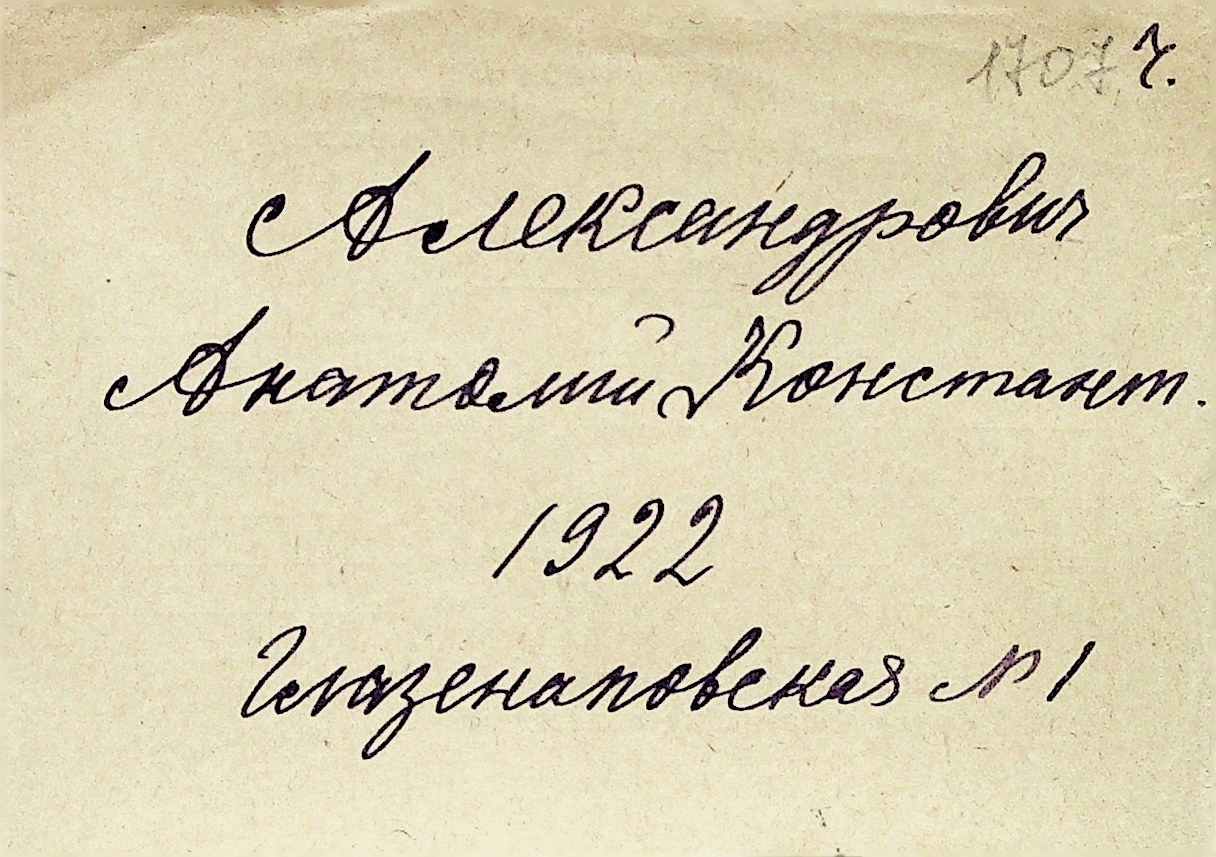 1707 ч.
Александрович
Анатолий Констант.
1922
Глазенаповская N 1